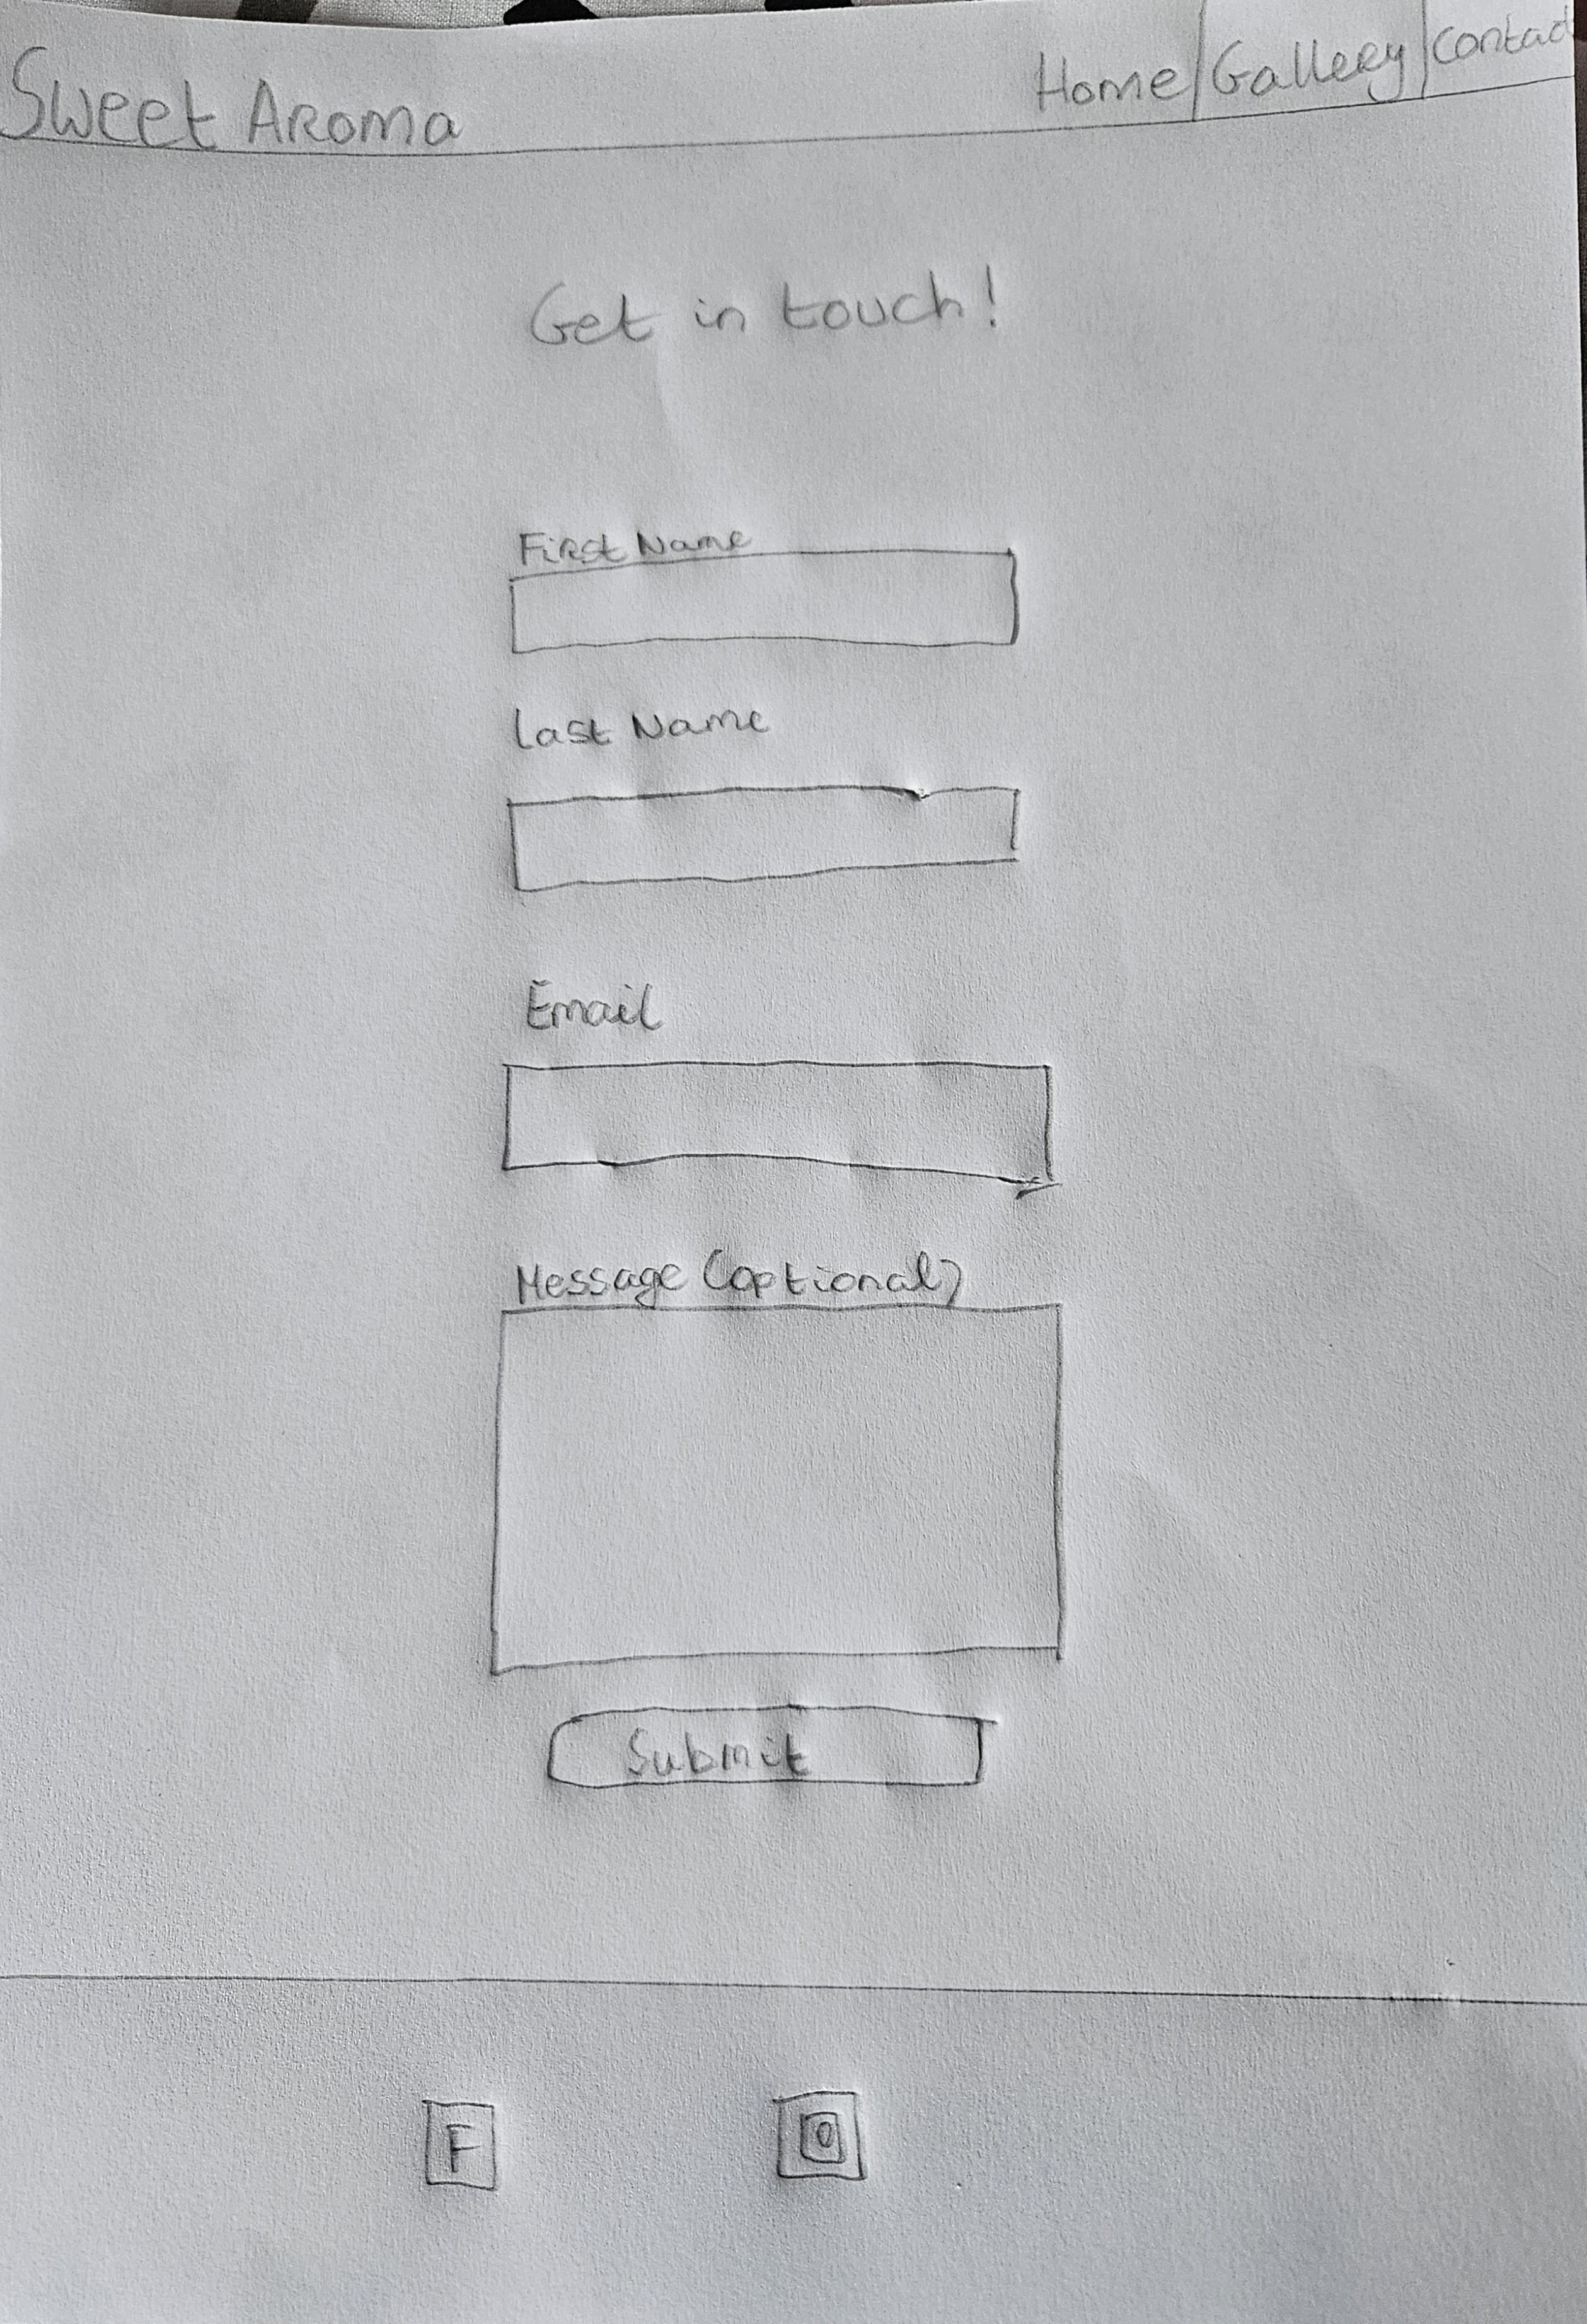 Sweet Aroma
Home Gallery Contact
Get in touch!
First Name
Last Name
Email
Message (optional)
Submit
F